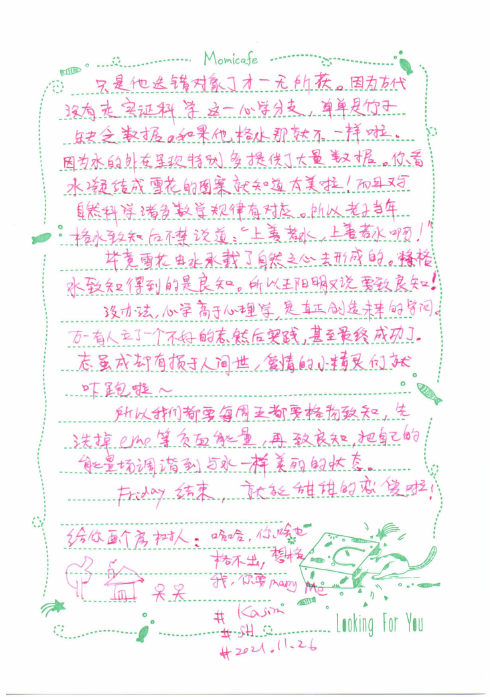 Momicafe
只是他选错对象了才一无所获。因为古代
没有走实证科学这一心学分支，单单是竹子
缺乏数据。如果他格水那就不一样啦。
因为水的外在呈现特别多提供了大量数据。你看
水凝结成雪花的图案就知道有多美啦！而且又与
自然科学诸多数学规律有对应。所以老子当年
格水致知后不禁说道："上善若水，上善若水啊！"
毕竟雪花由水承载了自然之心去形成的。格
水致知得到的是良知。所以王阳明又说要致良知！
没办法，心学高于心理学，是真正创造未来的学问。
万一有人立了一个不好的志，然后实践，甚至最终成功了。
志虽成却有损于人间世，爱情的小精灵们就
吓跑啦～
所以我们都要每周五都要格物致知，先
洗掉emo等负面能量，再致良知，把自己的
能量场调谐到与水一样美丽的状态。
Friday 结束，就能甜甜的恋爱啦！
给你画个房树人：哈哈，你啥也
格不出，想格
我，你要marry Me
哭哭
# Kasim
# SH
# 2021.11.26
Looking For You